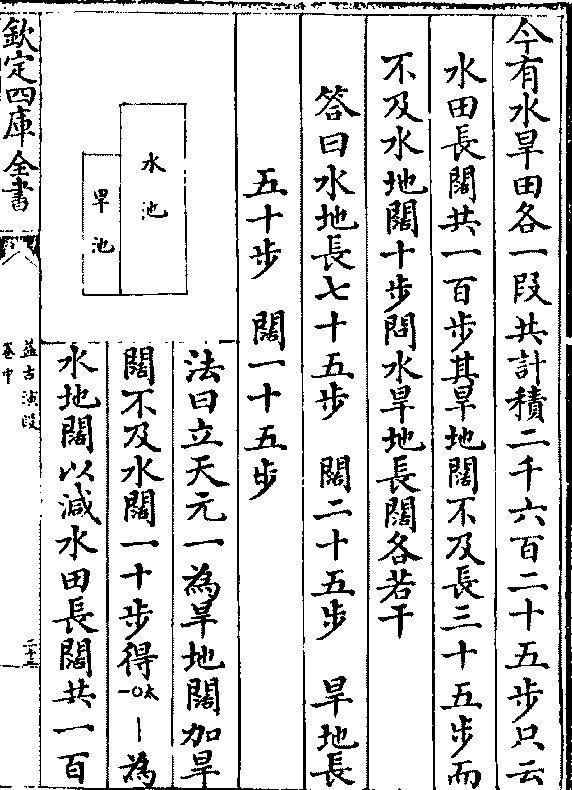 今有水旱田各一段共計積二千六百二十五步只云
水田長闊共一百步其旱地闊不及長三十五步而
不及水地闊十步問水旱地長闊各若干
答曰水地長七十五步 闊二十五步 旱地長
五十步 闊一十五步
法曰立天元一為旱地闊加旱
闊不及水闊一十步得一〇太｜為
水地闊以減水田長闊共一百
水池
旱池
欽定四庫全書
益古演段
卷中